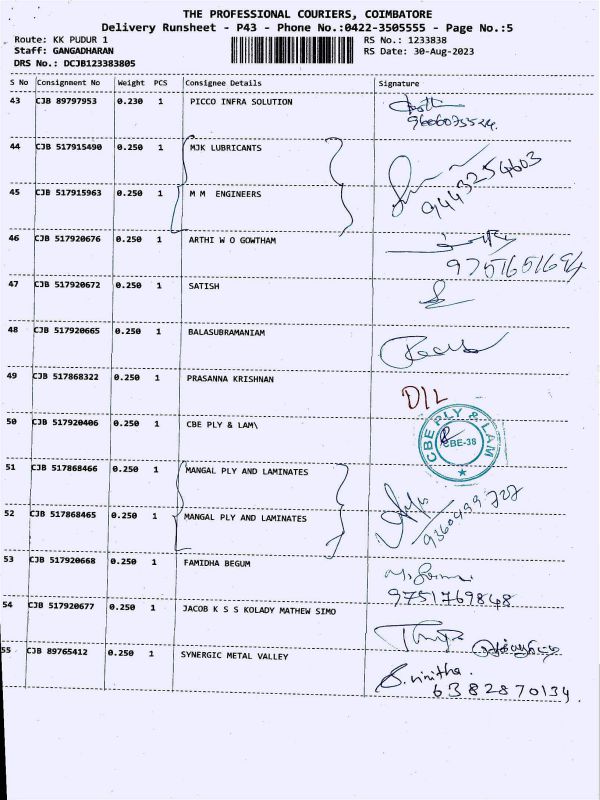 THE PROFESSIONAL COURIERS, COIMBATORE
Delivery Runsheet - P43 - Phone No.:0422-3505555 - Page No.:5
Route: KK PUDUR 1 RS No.: 1233838
Staff: GANGADHARAN RS Date: 30-Aug-2023
DRS No.: DCJB123383805
S No Consignment No Weight PCS Consignee Details Signature
43 CJB 89797953 0.230 1 PICCO INFRA SOLUTION
44 CJB 517915490 0.250 1 MJK LUBRICANTS
9443254603
45 CJB 517915963 0.250 1 M M ENGINEERS
46 CJB 517920676 0.250 1 ARTHI W O GOWTHAM
9751651694
47 CJB 517920672 0.250 1 SATISH
48 CJB 517920665 0.250 1 BALASUBRAMANIAM
49 CJB 517868322 0.250 1 PRASANNA KRISHNAN
DIL
50 CJB 517920406 0.250 1 CBE PLY & LAM\
CBE PLY & LAM
CBE-38
51 CJB 517868466 0.250 1 MANGAL PLY AND LAMINATES
52 CJB 517868465 0.250 1 MANGAL PLY AND LAMINATES
9360499727
53 CJB 517920668 0.250 1 FAMIDHA BEGUM
9751769848
54 CJB 517920677 0.250 1 JACOB K S S KOLADY MATHEW SIMO
55 CJB 89765412 0.250 1 SYNERGIC METAL VALLEY
S.vinitha.
6382870134.